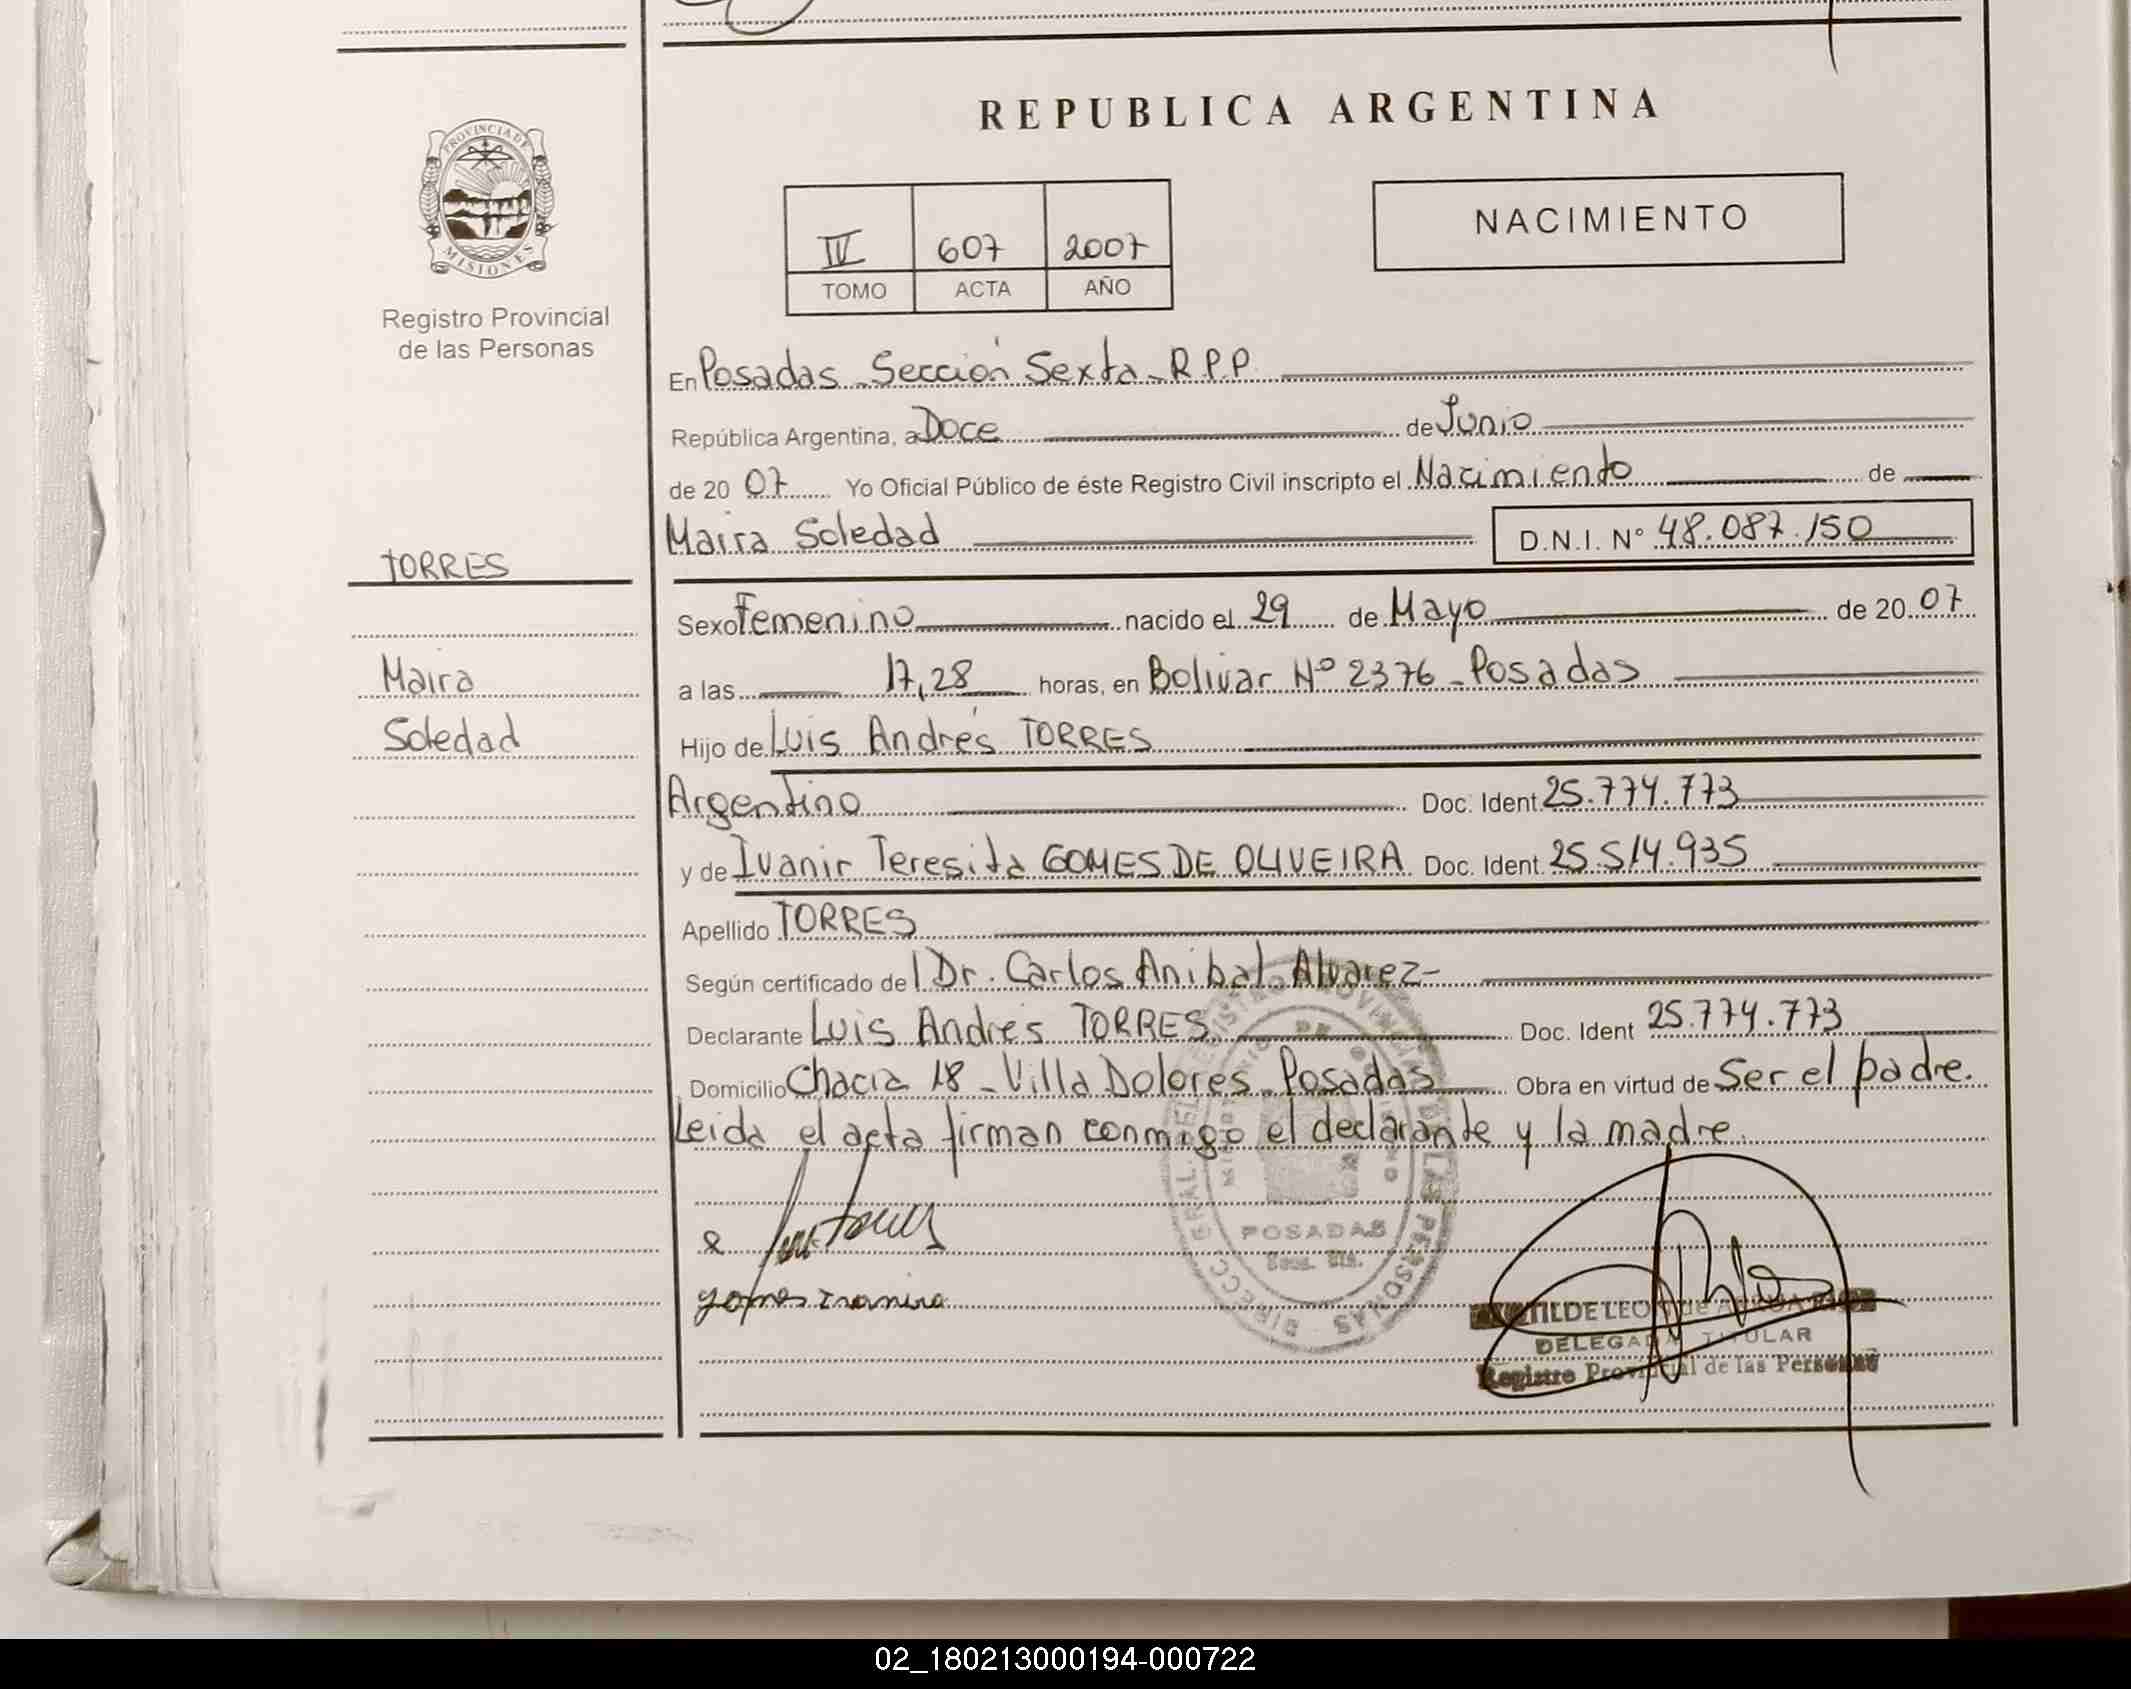 REPUBLICA ARGENTINA
PROVINCIA DE
MISIONES
Registro Provincial
de las Personas
IV 607 2007
TOMO ACTA AÑO
NACIMIENTO
En Posadas Sección Sexta - R.P.P.
República Argentina, a Doce de Junio
de 20 07 Yo Oficial Público de éste Registro Civil inscripto el Nacimiento de
Maira Soledad D.N.I. Nº 48.087.150
TORRES
Maira
Soledad
Sexo Femenino nacido el 29 de Mayo de 20 07
a las 17,28 horas, en Bolivar Nº 2376 - Posadas
Hijo de Luis Andrés TORRES
Argentino Doc. Ident 25.774.773
y de Ivanir Teresita GOMES DE OLIVEIRA Doc. Ident. 25.514.935
Apellido TORRES
Según certificado de l Dr. Carlos Anibal Alvarez -
Declarante Luis Andrés TORRES Doc. Ident 25.774.773
Domicilio Chacra 18 - Villa Dolores - Posadas Obra en virtud de Ser el padre.
Leida el acta firman conmigo el declarante y la madre.
POSADAS
DELEGADA TITULAR
Registro Provincial de las Personas
02_180213000194-000722